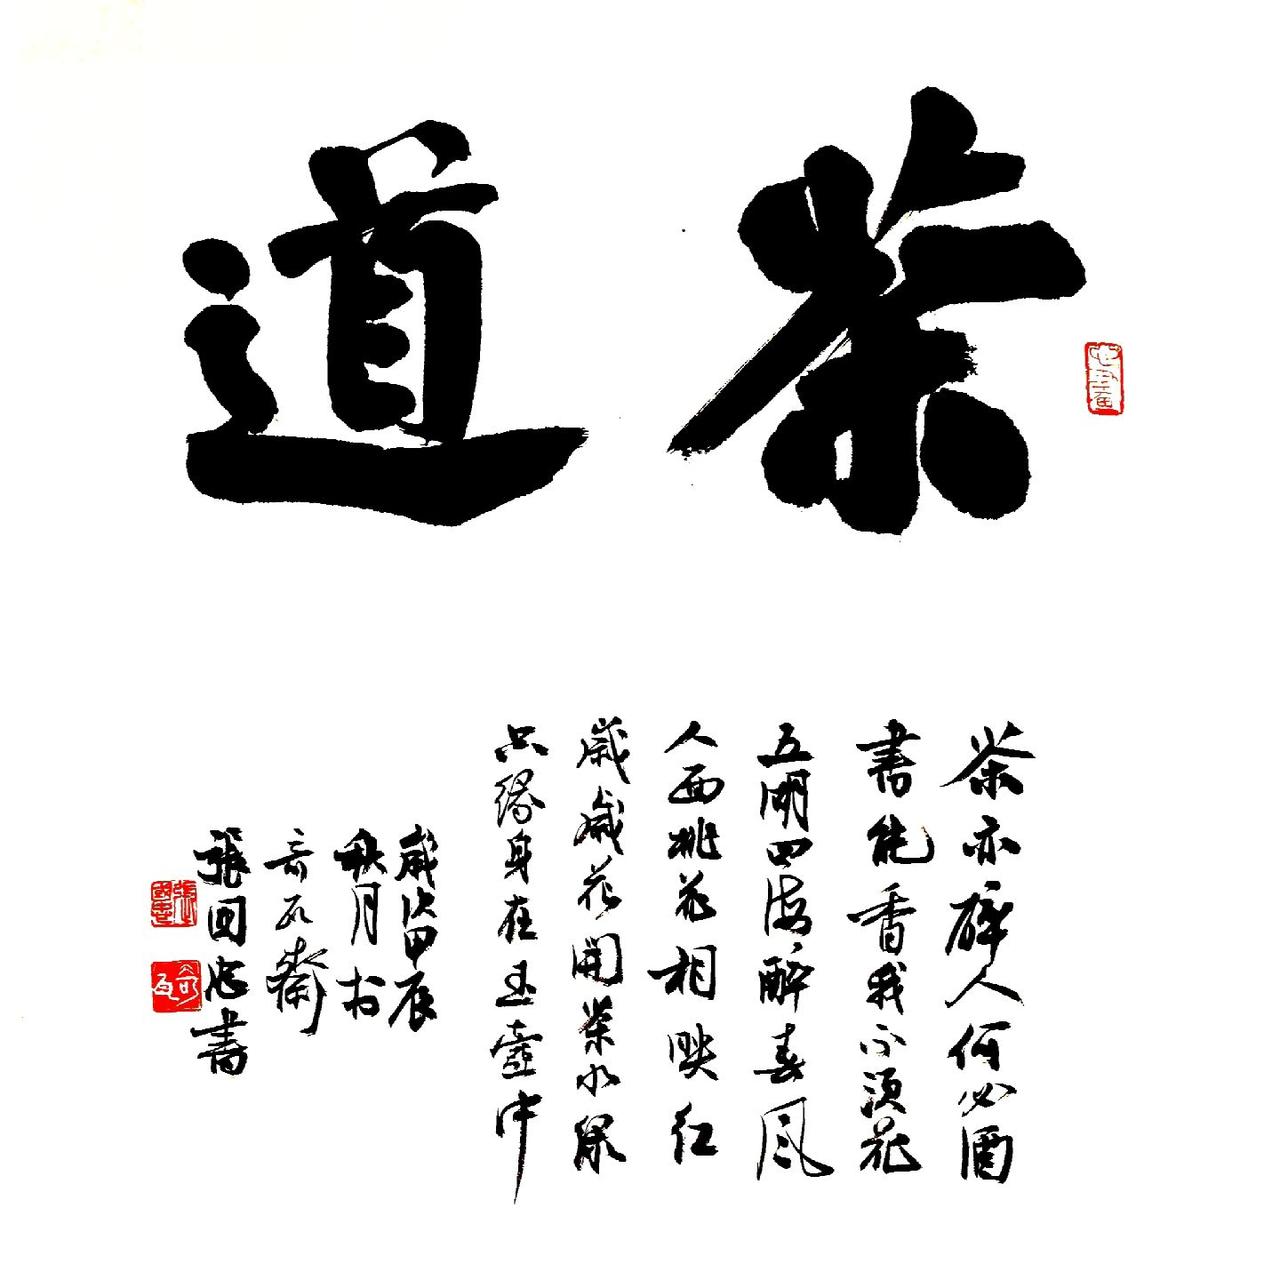 茶道
茶亦醉人何必酒
書能香我不須花
五湖四海醉春風
人面桃花相映紅
歲歲花開茶水綠
只緣身在玉壺中
歲次甲辰
秋月於
奇石齋
張国忠書
張國忠
奇石